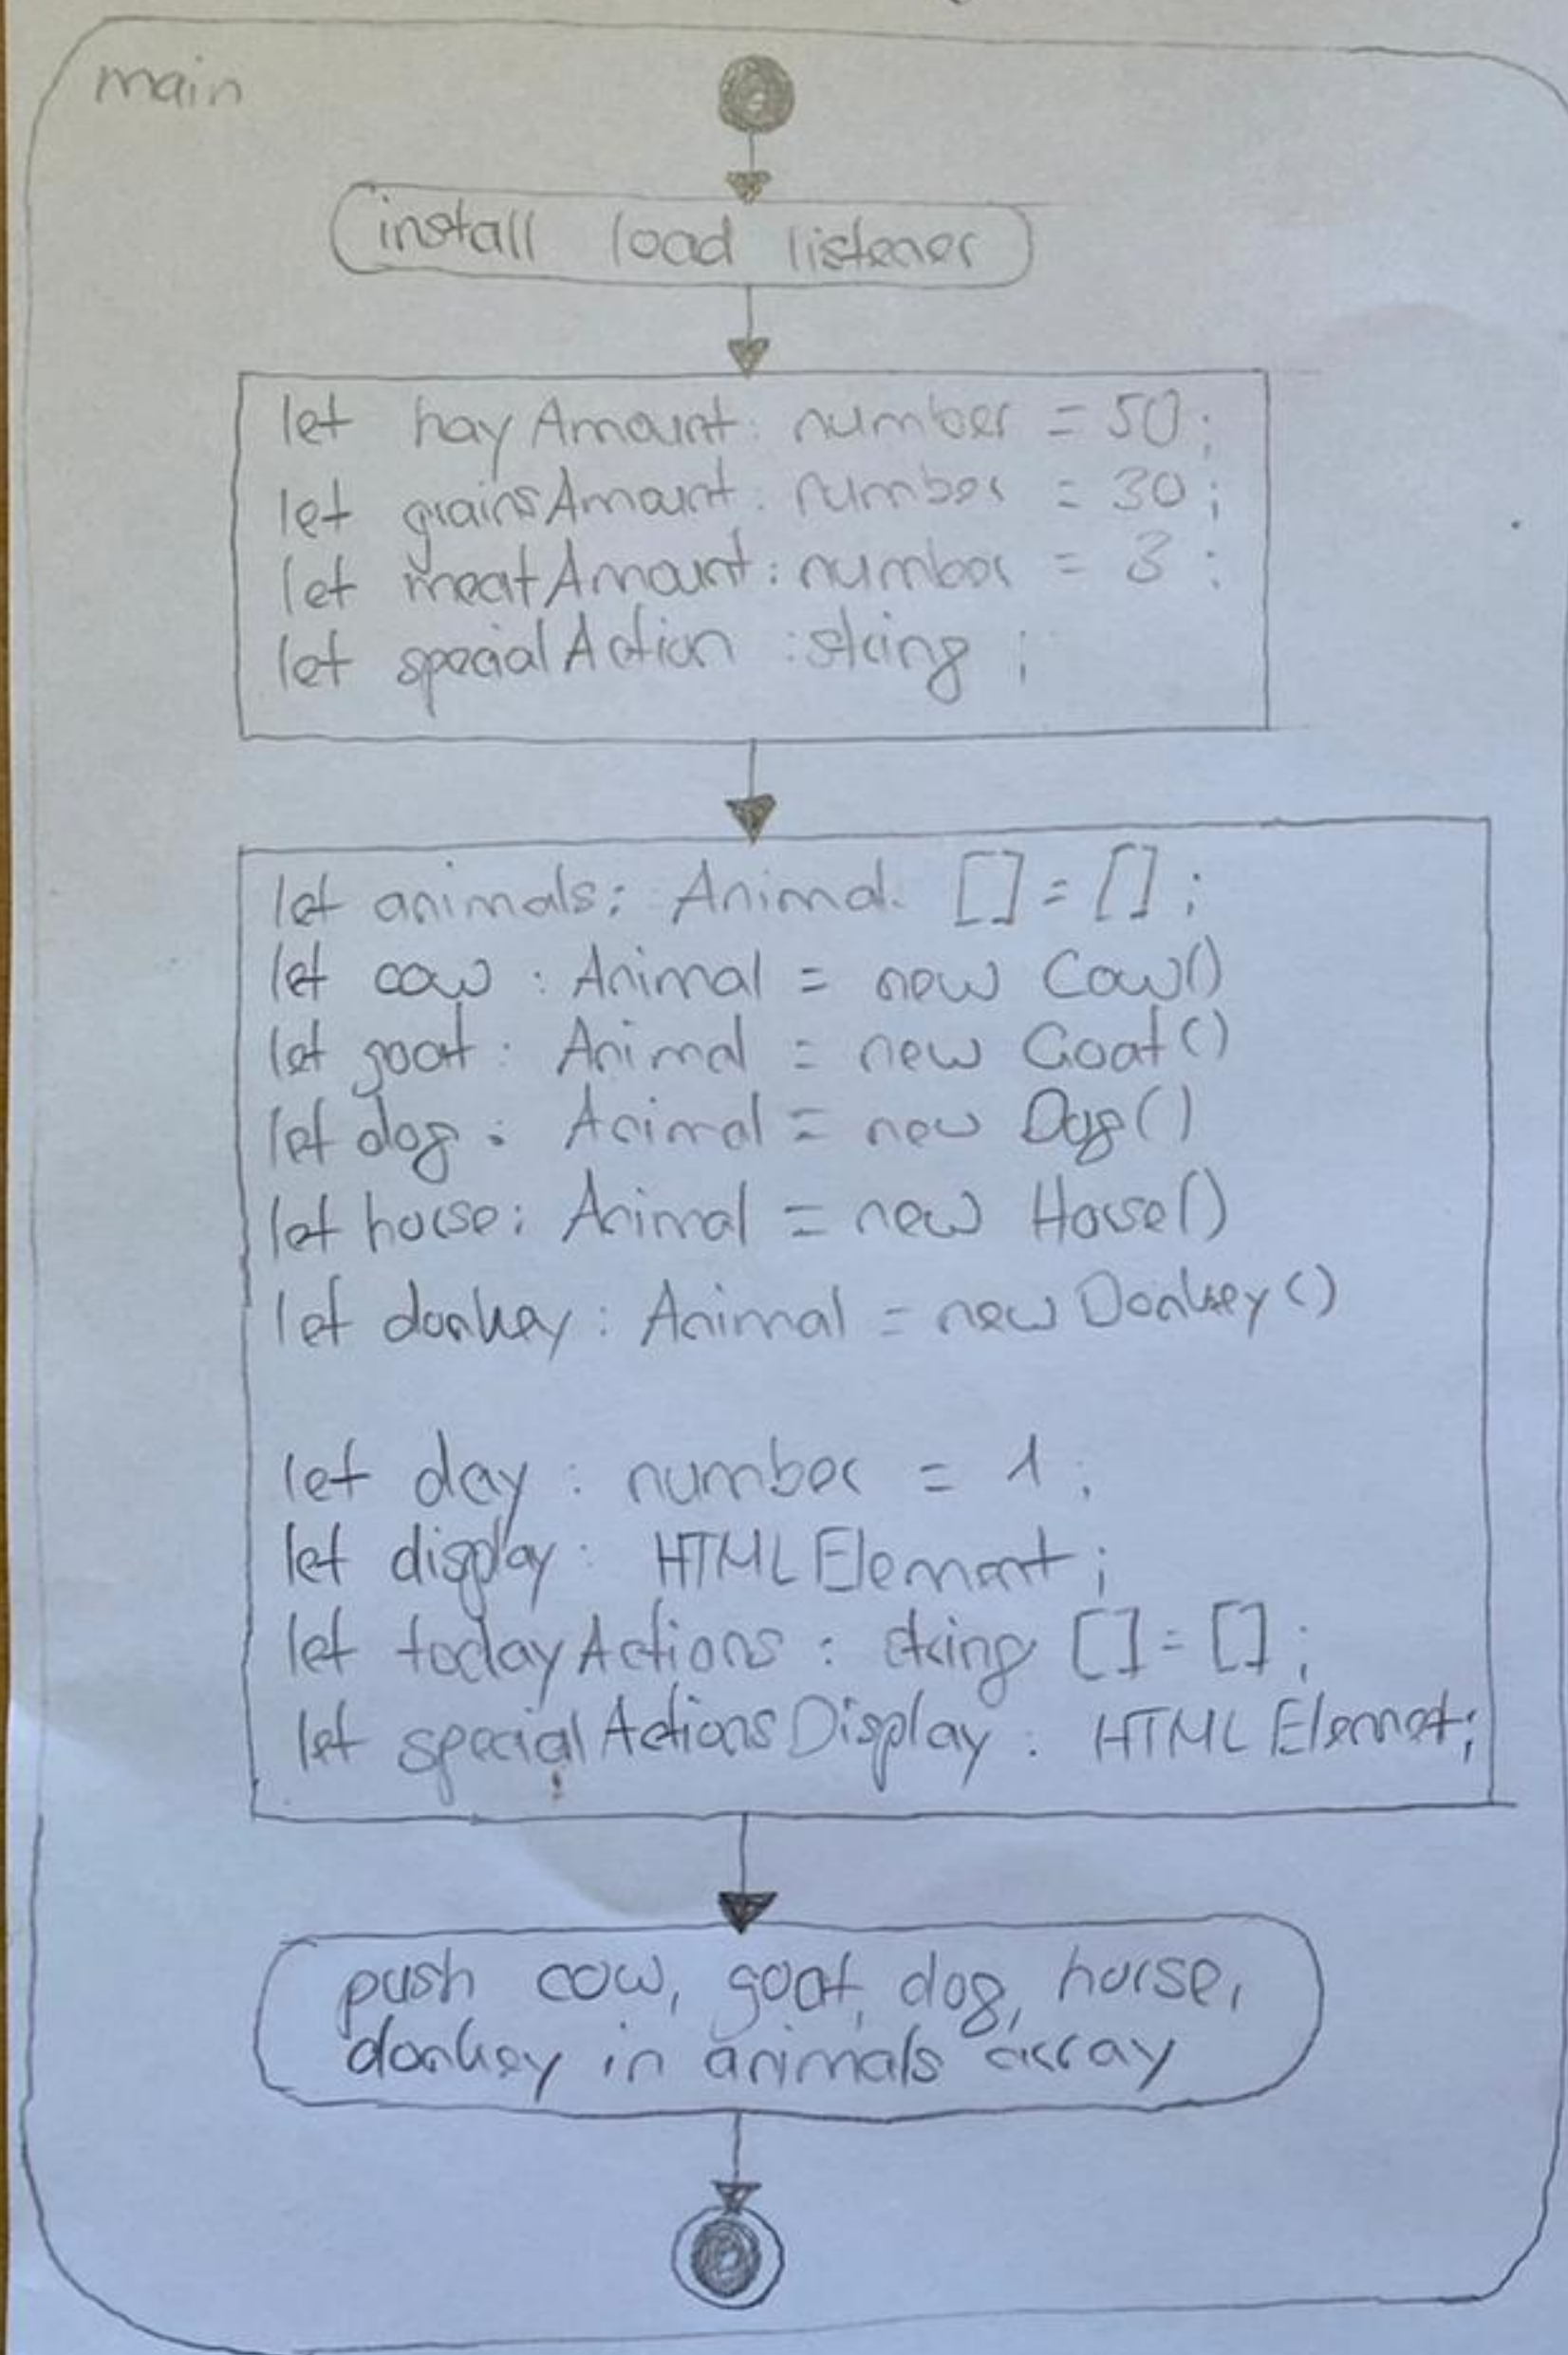 main
install load listener
let hayAmount: number = 50;
let grainsAmount: number = 30;
let meatAmount: number = 3;
let specialAction :string;
let animals: Animal [] = [];
let cow : Animal = new Cow()
let goat : Animal = new Goat()
let dog : Animal = new Dog()
let horse: Animal = new Horse()
let donkey : Animal = new Donkey()
let day : number = 1;
let display : HTMLElement;
let todayActions : string [] = [];
let specialActionsDisplay : HTMLElemet;
push cow, goat, dog, horse,
donkey in animals array